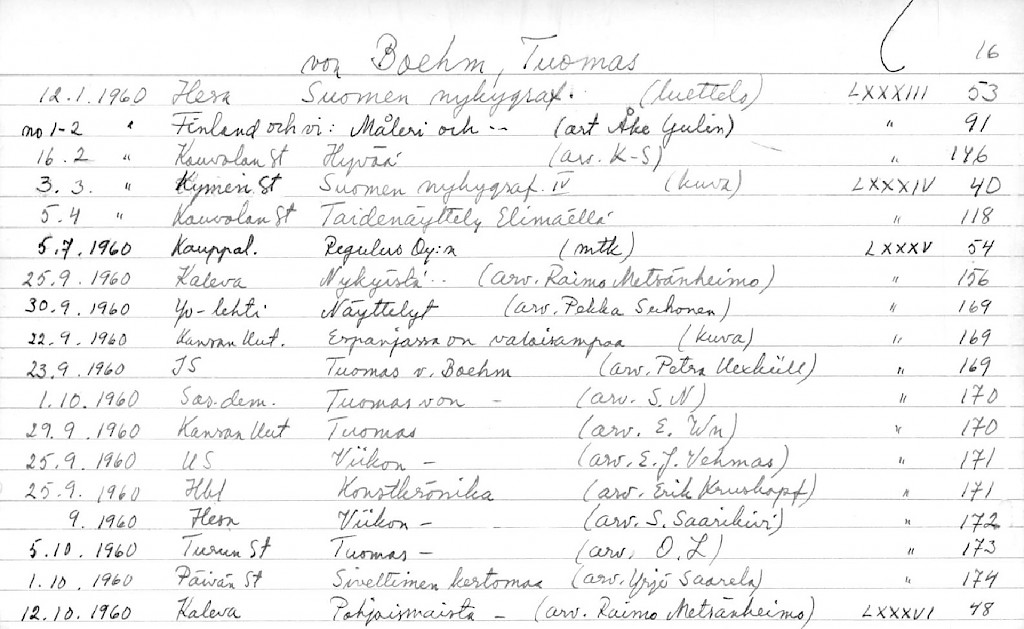 16
von Boehm, Tuomas
12.1.1960 Hesa Suomen nykygraf. (luettelo) LXXXIII 53
no 1-2 " Finland och vi: Måleri och -- (art Åke Gulin) " 91
16.2 " Kouvolan St Hyvää (arv. K-S) " 146
3.3. " Kymen St Suomen nykygraf. IV (kuva) LXXXIV 40
5.4 " Kouvolan St Taidenäyttely Elimäellä " 118
5.7.1960 Kauppal. Regulus Oy:n (mtk) LXXXV 54
25.9.1960 Kaleva Nykyistä.. (arv. Raimo Metsänheimo) " 156
30.9.1960 Yv-lehti Näyttelyt (arv. Pekka Suhonen) " 169
22.9.1960 Kansan Uut. Espanjassa on valoisampaa (kuva) " 169
23.9.1960 IS Tuomas v. Boehm (arv. Petra Uexküll) " 169
1.10.1960 Sos.dem. Tuomas von - (arv. S.N) " 170
29.9.1960 Kansan Uut Tuomas (arv. E. Wn) " 170
25.9.1960 US Viikon - (arv. E.J. Vehmas) " 171
25.9.1960 Hbl Konstkrönika (arv. Erik Kruskopf) " 171
9.1960 Hesa Viikon - (arv. S. Saarikivi) " 172
5.10.1960 Turun St Tuomas - (arv. O.L) " 173
1.10.1960 Päivän St Siveltimen kertomaa (arv. Yrjö Saarela) " 174
12.10.1960 Kaleva Pohjoismaista - (arv. Raimo Metsänheimo) LXXXVI 48